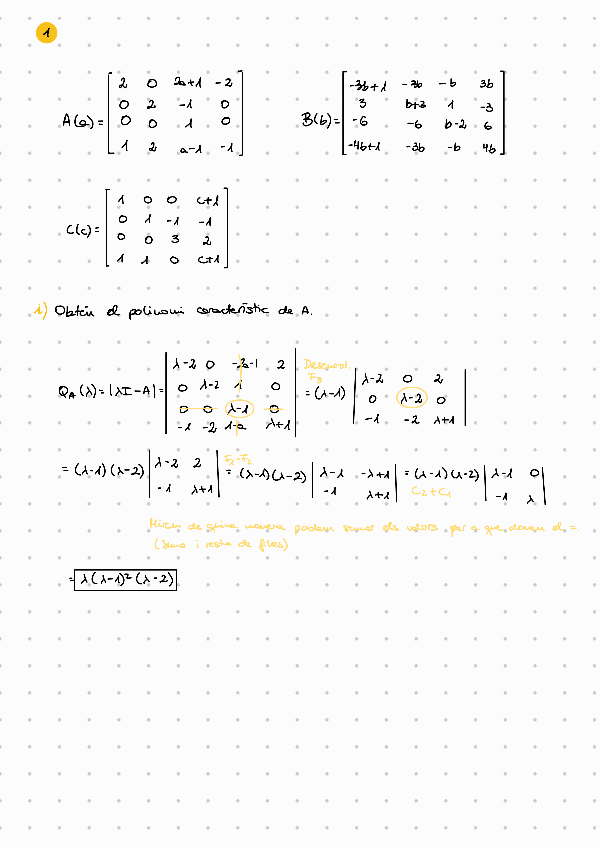 1
A(a) = [ 2 0 2a+1 -2
0 2 -1 0
0 0 1 0
1 2 a-1 -1 ]
B(b) = [ -3b+1 -3b -b 3b
3 b+3 1 -3
-6 -6 b-2 6
-4b+1 -3b -b 4b ]
C(c) = [ 1 0 0 c+1
0 1 -1 -1
0 0 3 2
1 1 0 c+1 ]
i) Obtén el polinomi característic de A.
Q_A(λ) = |λI-A| = | λ-2 0 -2a-1 2
0 λ-2 1 0
0 0 λ-1 0
-1 -2 1-a λ+1 |
Desenvol. F3
= (λ-1) | λ-2 0 2
0 λ-2 0
-1 -2 λ+1 |
= (λ-1)(λ-2) | λ-2 2
-1 λ+1 |
= (λ-1)(λ-2) | λ-1 -λ+1
-1 λ+1 |
C2+C1
= (λ-1)(λ-2) | λ-1 0
-1 λ |
podem sumar els valors per a que donen el =.
(suma i resta de files)
= λ(λ-1)²(λ-2)